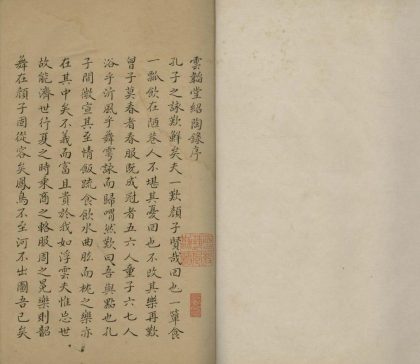 雲韜堂紹陶錄序
孔子之詠歎鮮矣夫一歎顏子賢哉回也一簞食
一瓢飲在陋巷人不堪其憂回也不改其樂再歎
曾子莫春者春服既成冠者五六人童子六七人
浴乎沂風乎舞雩詠而歸喟然歎曰吾與點也孔
子間宣其至情飯疏食飲水曲肱而枕之樂亦
在其中矣不義而富且貴於我如浮雲夫惟忘世
故能濟世行夏之時乘商之輅服周之冕樂則韶
舞在顏子固從容矣鳳鳥不至河不出圖吾已矣